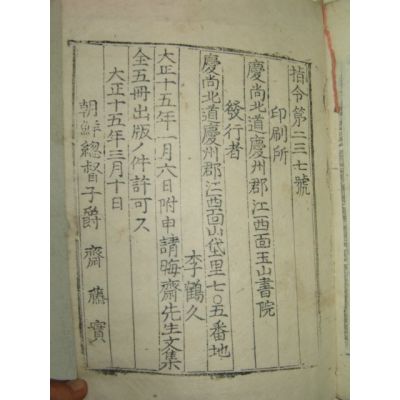 指令第二三七號
印刷所
慶尚北道慶州郡江西面玉山書院
發行者
慶尚北道慶州郡江西面山岱里七〇五番地
李鶴久
大正十五年一月六日附申請晦齋先生文集
全五冊出版ノ件許可ス
大正十五年三月十日
朝鮮總督子爵 齋藤實